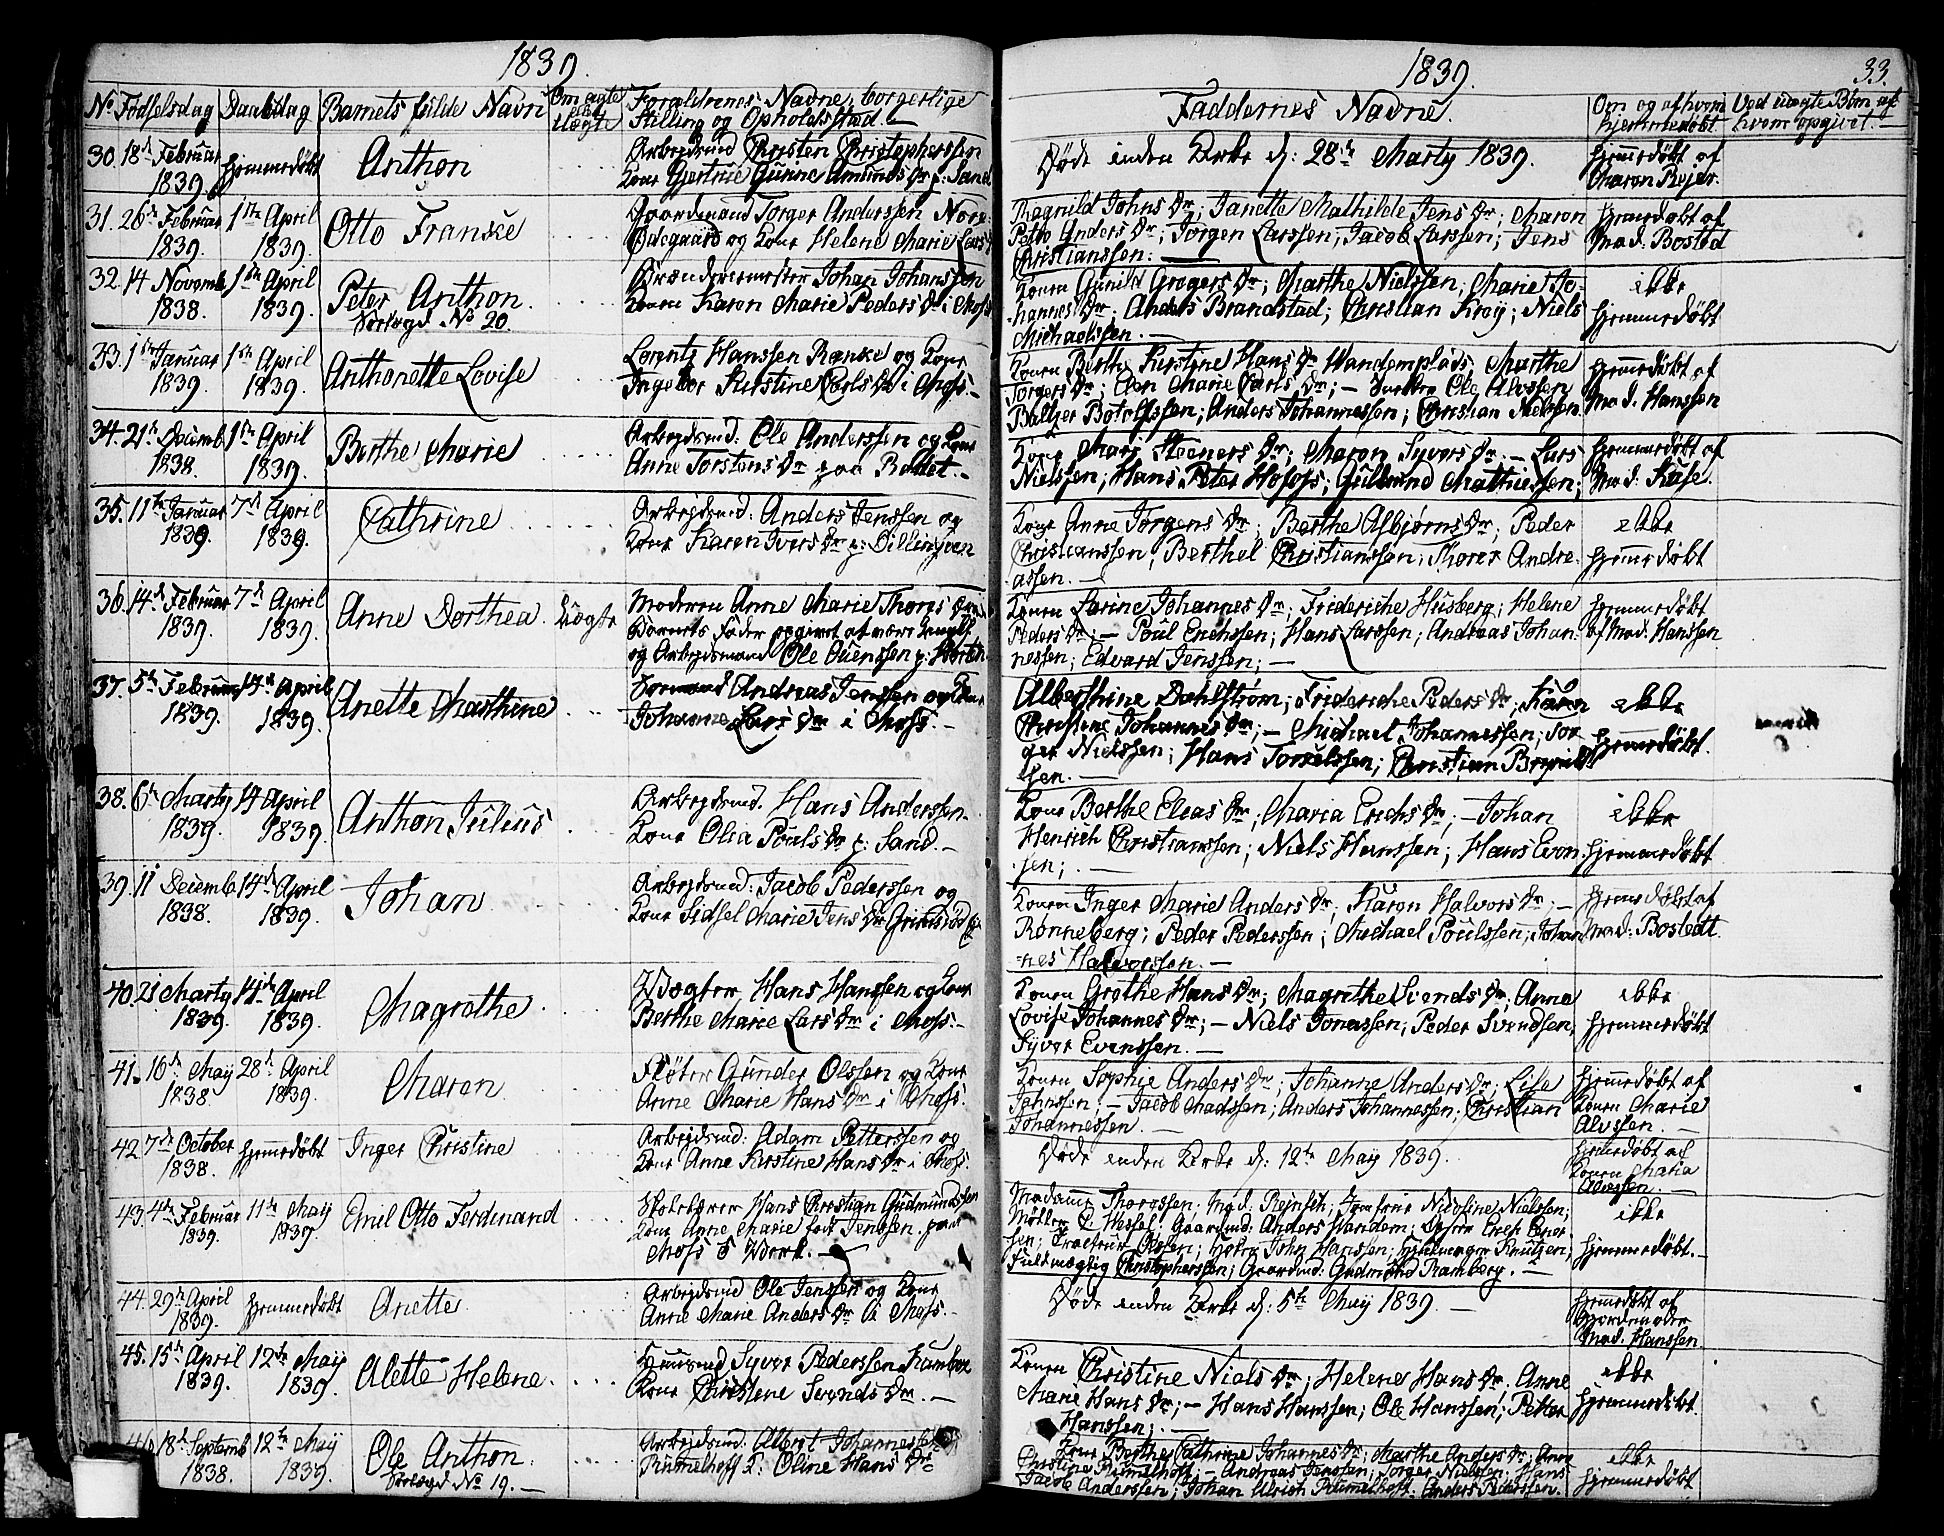 1839.
No. Fødselsdag Daabsdag Barnets fulde Navn Om ægte eller Uægte Forældrenes Navne, borgerlige Stilling og Opholdssted.
30. 18de Februar 1839. hjemmedøbt Anthon
Arbejdsmd Christen Christopherssen
Kone Gjertrue Gunne Amunds Dr p: Sand
31. 26de Februar 1839. 1ste April 1839. Otto Franske
Gaardmand Torger Anderssen Nore
Ødegaard og Kone Helene Marie Lars
32. 14 Novemb 1838. 1ste April 1839. Peter Anthon.
Tvilling No 20.
Brændeviemester Johan Johanssen
Konen Karen Marie Peders Dr i Moss
33. 1ste Januar 1839. 1ste April 1839. Anthonette Lovise
Lorents Hanssen Ranske og Kone
Ingebor Kirstine Carls Dr i Moss.
34. 21de Decemb 1838. 1ste April 1839. Berthe Marie
Arbejdsmd: Ole Anderssen og Kone
Anne Torstens Dr paa Beldet.
35. 11te Januar 1839. 7de April 1839. Cathrine
Arbejdsmd: Anders Jenssen og
Kone Karen Ivers Dr p: Dillingøen
36. 14de Februar 1839. 7de April 1839. Anne Dorthea Uægte
Moderen Anne Marie Thores Dr
Barnets Fader opgivet at være
og Arbejdsmand Ole Ouenssen p: Horten
37. 5te Februar 1839. 14de April 1839. Anette Marthine
Formand Andreas Jenssen og Kone
Johanne Lars Dr i Moss.
38. 6te Marty 1839. 14de April 1839. Anthon Julius
Arbejdsmd. Hans Anderssen
Kone Olia Pouls Dr p: Sand.
39. 11 Decemb 1838. 14de April 1839. Johan
Arbejdsmd: Jacob Pederssen og
Kone Sidsel Marie Jens Dr
40. 21 Marty 1839. 14de April 1839. Magrethe
Vægter Hans Hanssen og Kone
Berthe Marie Lars Dr i Moss.
41. 16de Maij 1838. 28de April 1839. Maren
Fløter Gunder Olssen og Kone
Anne Marie Hans Dr i Moss.
42. 7de October 1838. hjemmedøbt Inger Christine
Arbejdsmd: Adam Petterssen og
Kone Anne Kirstine Hans Dr i Moss.
43. 4de Februar 1839. 11te Maij 1839. Emil Otto Ferdinand
Skolelærer Hans Christian Gudmundssen
Kone Anne Marie født Jenssen paa
Moss Værk.
44. 29de April 1839. hjemmedøbt Anette
Arbejdsmd Ole Jenssen og Kone
Anne Marie Anders Dr i Moss
45. 15de April 1839. 12te Maij 1839. Alette Helene
Huusmd Syver Pederssen Kambo
Kone Christene Svends Dr.
46. 18de Septemb 1838. 12te Maij 1839. Ole Anthon.
Tvilling No 19.
Arbejdsmd: Albret Johannessen
Rumelhoff K: Oline Hans Dr
1839. 33.
Faddernes Navne. Om og af hvem hjemmedøbt. Ved uægte Børn af hvem opgivet.
Døde inden Kirke d: 28de Marty 1839. hjemmedøbt af Maron Rejer.
Ragnild Johns Dr; Janette Mathilde Jens Dr; Maron
Petro Anders Dr; Jørgen Larssen; Jacob Larssen; Jens
Christianssen: hjemmedøbt af Mad. Bostad
Konen Gunild Gregers Dr; Marthe Nielssen; Marie Jo-
hannes Dr; Anders Brandstad; Christian Krøy; Niels
Michaelssen. ikke hjemmedøbt
Konen Berthe Kirstine Hans Dr Vandemplads, Marthe
Torgers Dr; Ann Marie Carls Dr; Ole Alvssen
Balzer Botolfssen; Anders Johannessen; Christian Nielssen. hjemmedøbt af Mad. Hanssen
Kone Mari Steeners Dr; Maron Syvers Dr. Lars
Nielssen; Hans Peter Hofoss; Guldmund Mathiessen; hjemmedøbt af Mad. Kuse.
Kone Anne Jørgens Dr; Berthe Asbjørns Dr; Peder
Christianssen, Berthel Christianssen; Thorer Andre-
assen. ikke hjemmedøbt
Konen Larine Johannes Dr; Frideriche Husberg; Helene
Peders Dr; Poul Erichssen; Hans Larssen; Andreas Johan-
nessen; Edvard Jenssen; hjemmedøbt af Mad. Hanssen
Alberthine Dahlstrøm; Frideriche Peders Dr; Karen
Johannes Dr; Michael Johannessen; Tor
ger Nielssen; Hans Torkelssen; Christian Brynild
ssen. ikke hjemmedøbt.
Kone Berthe Elias Dr; Maria Erichs Dr; Johan
Henrich Christianssen; Niels Hanssen; Hans Even
sen; ikke hjemmedøbt
Konen Inger Marie Anders Dr; Karen Halvors Dr;
Rønneberg; Peder Pederssen; Michael Poulssen; Johan
nes Halvorssen. hjemmedøbt af Mad: Bostedt.
Konen Grethe Hans Dr; Magrethe Svends Dr; Anne
Lovise Johannes Dr; Niels Jonassen; Peder Svendsen,
Syver Evenssen. ikke hjemmedøbt
Konen Sophie Anders Dr; Johanne Anders Dr; Lise
Johnssen; Jacob Madssen; Anders Johannessen; Christian
Johannessen. hjemmedøbt af Konen Marie Alvssen.
Døde inden Kirke d: 12te Maij 1839. hjemmedøbt af Konen Maria Alvssen.
Madame Thoressen. Mad. Reinsch; Jomfrue Nicoline Nielssen;
Møller C. Wessel Gaardmd: Anders Vandem;
Olssen; John Hanssen; Knutzen;
Fuldmægtig Christopherssen; Gaardmd: Gudmund Ramberg. ikke hjemmedøbt.
Døde inden Kirke d: 5te Maij 1839. hjemmedøbt af Jordemoder Mad. Hanssen
Konen Christine Niels Dr; Helene Hans Dr; Anne
Marie Hans Dr; Hans Hanssen; Ole Hanssen; Petter
Hanssen; ikke hjemmedøbt.
Kone Berthe Cathrine Johannes Dr; Marthe Anders Dr; Anne
Christine Rumelhoff; Andreas Jenssen; Torger Nielssen; Hans
Jacob Anderssen; Johan Ulrich Rumelhoff; Anders Pederssen. ikke hjemmedøbt